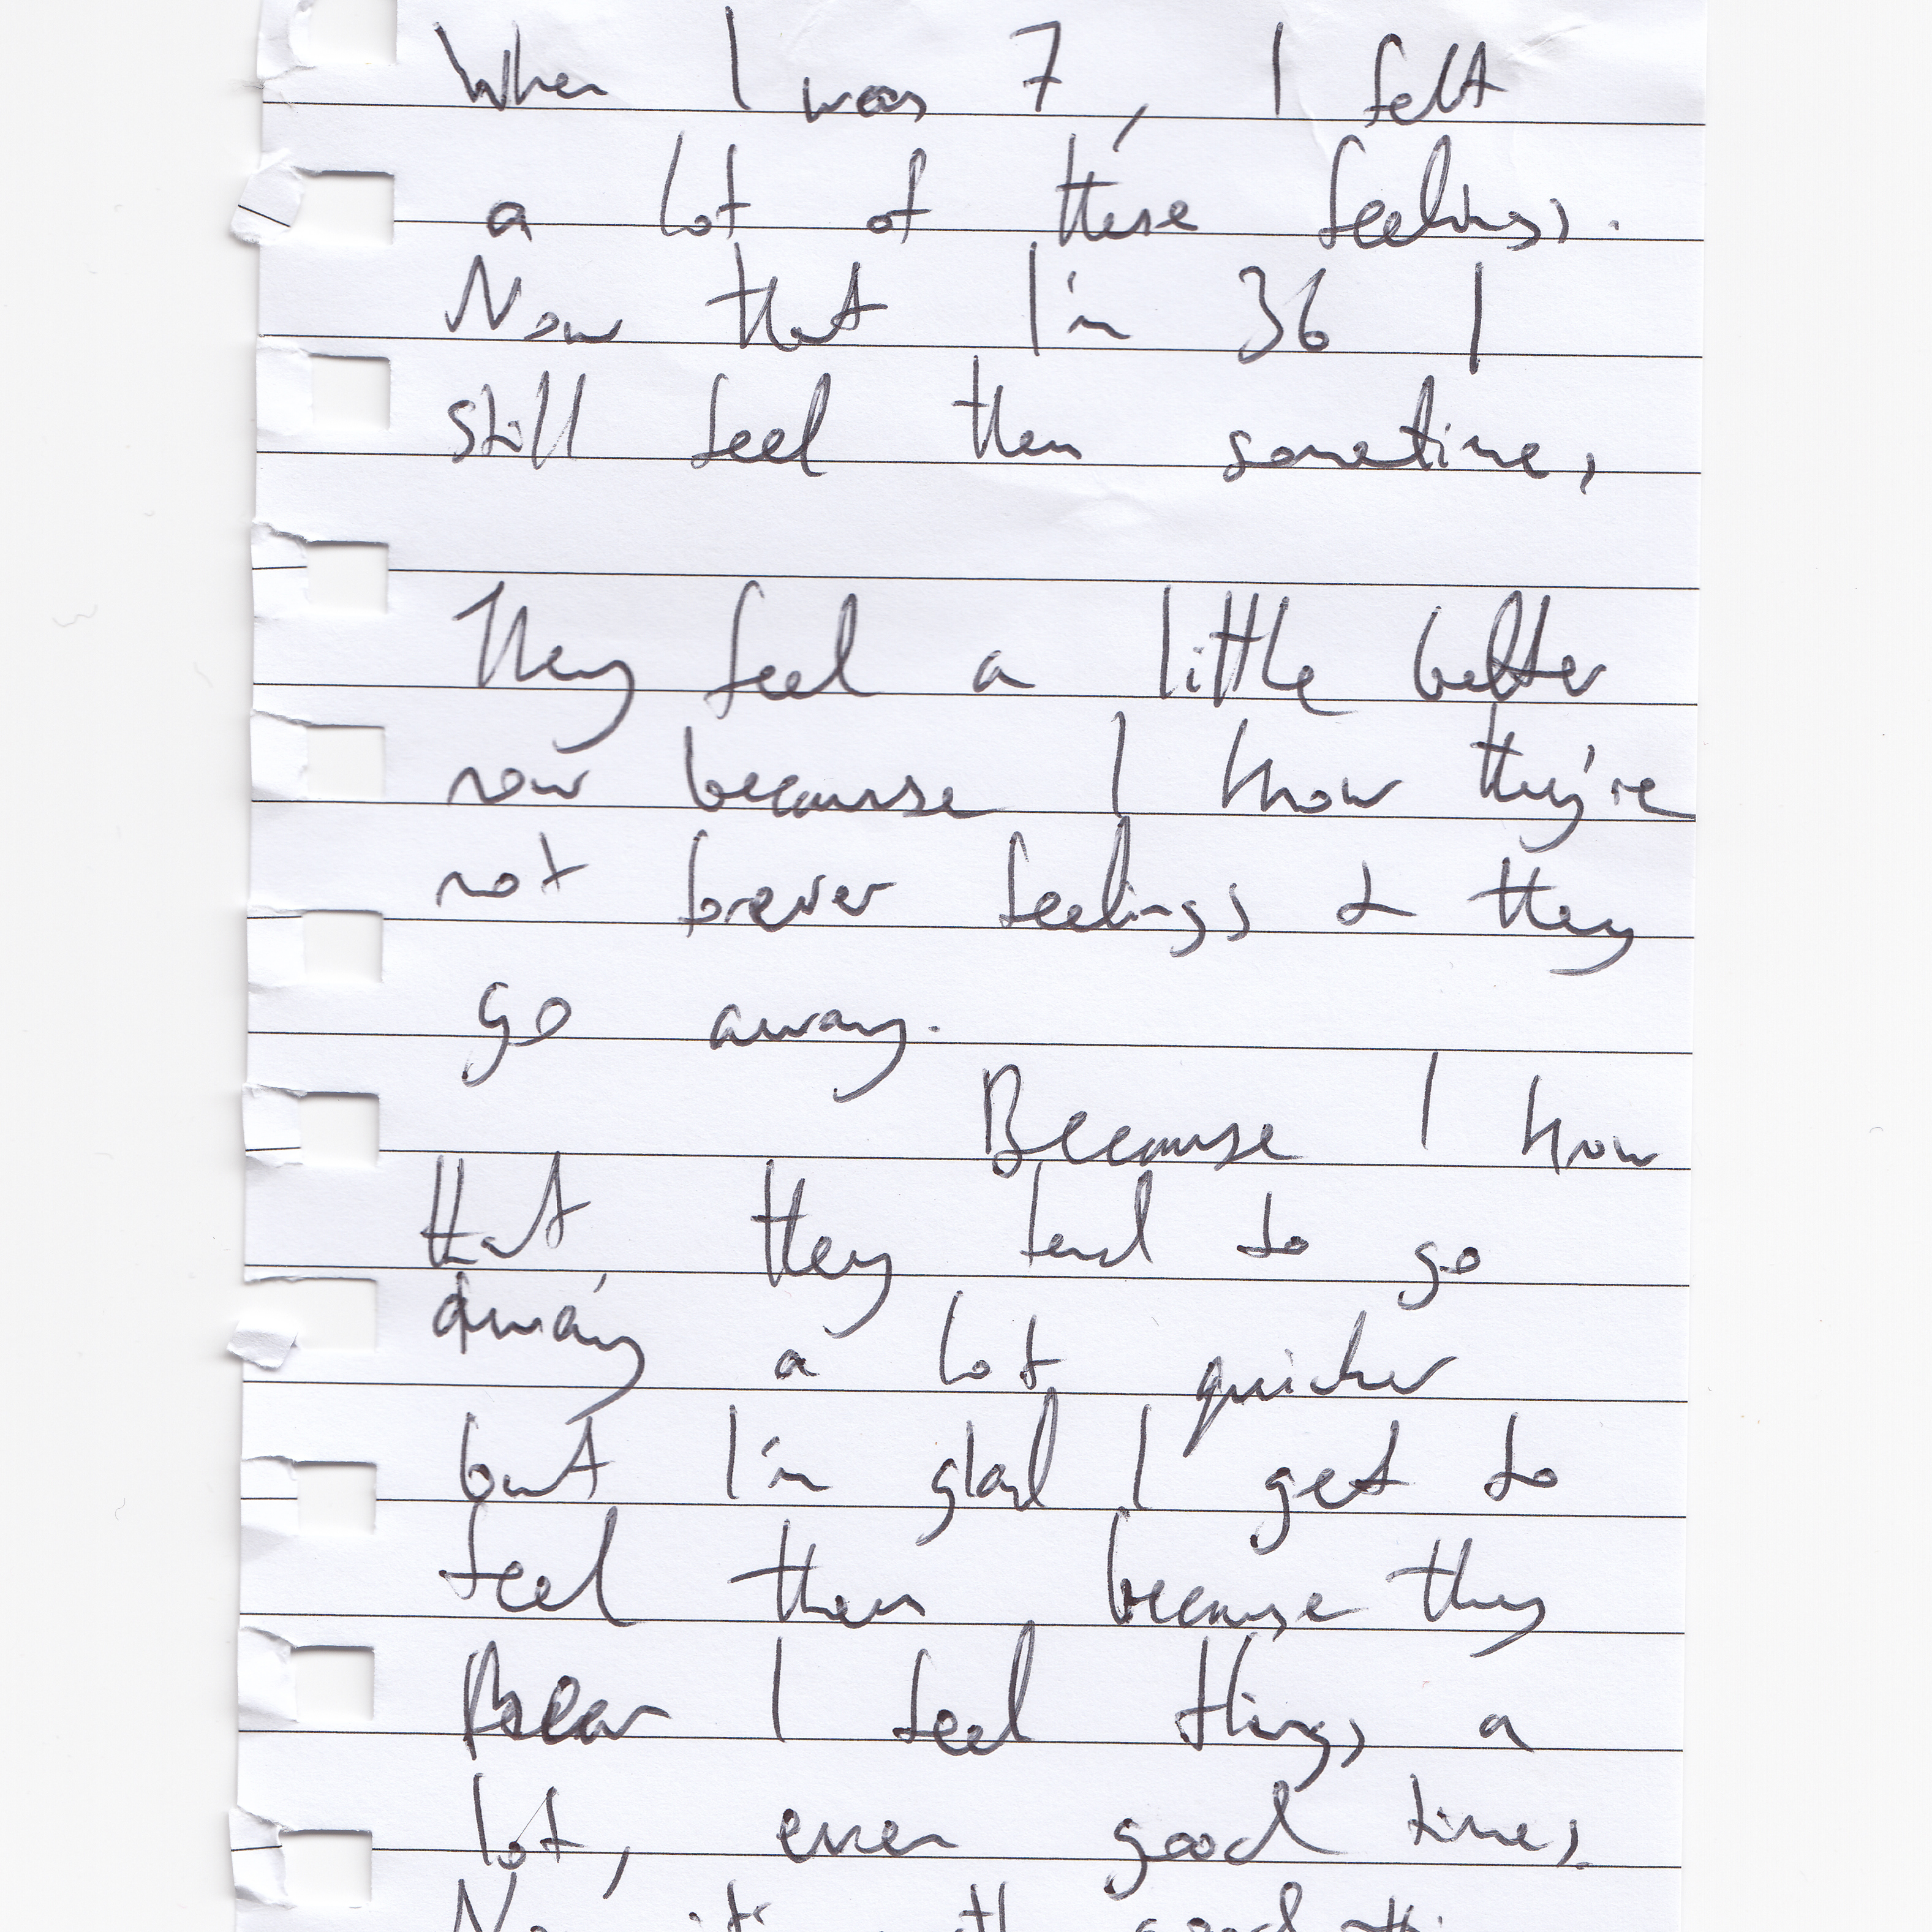 When I was 7, I felt
a lot of these feelings.
Now that I'm 36 I
still feel them sometimes
They feel a little better
now because I know they're
not forever feelings & they
go away.
Because I know
that they tend to go
away a lot quicker
but I'm glad I get to
feel them because they
mean I feel things a
lot, even good times.